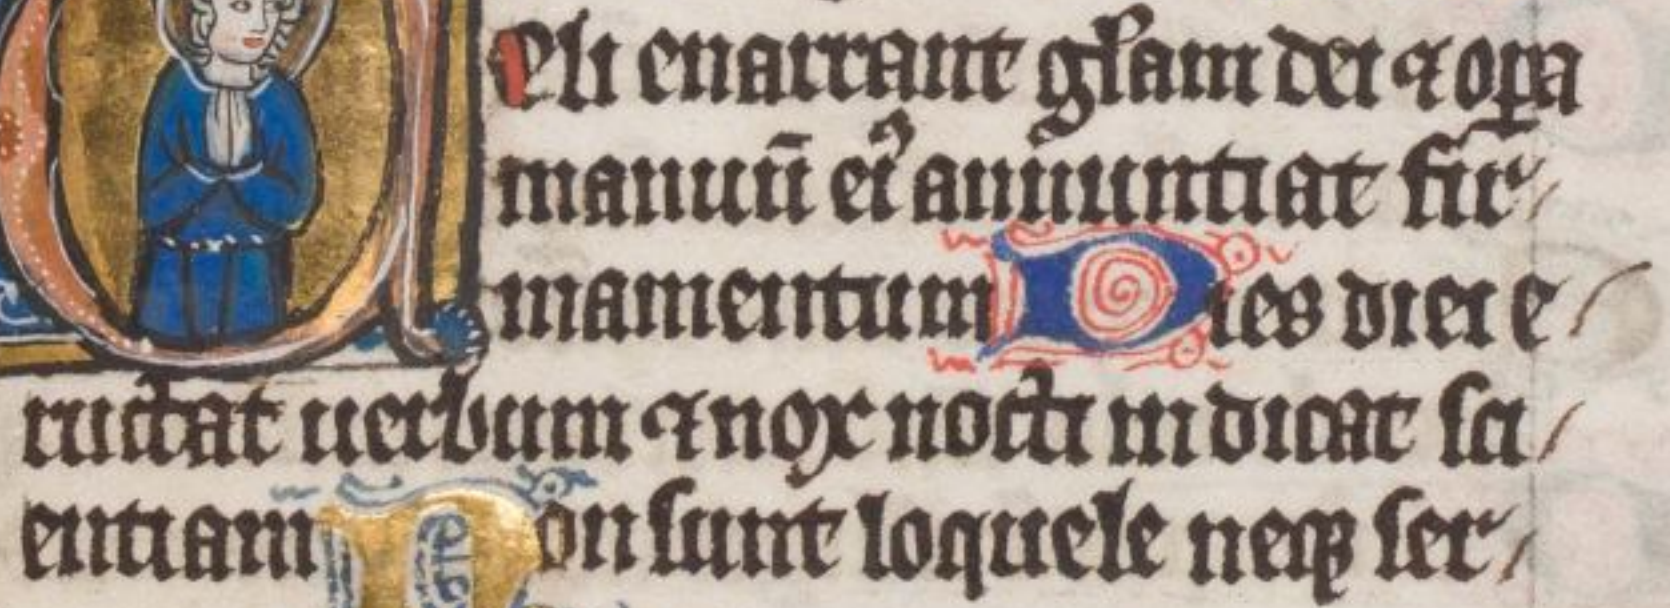 Celi enarrant gl̄am dei ⁊ oꝑa
manuū eiꝰ annuntiat fir-
mamentum Dies diei e
ructat uerbum ⁊ nox nocti indicat sci
entiam Non sunt loquele neqꝫ ser